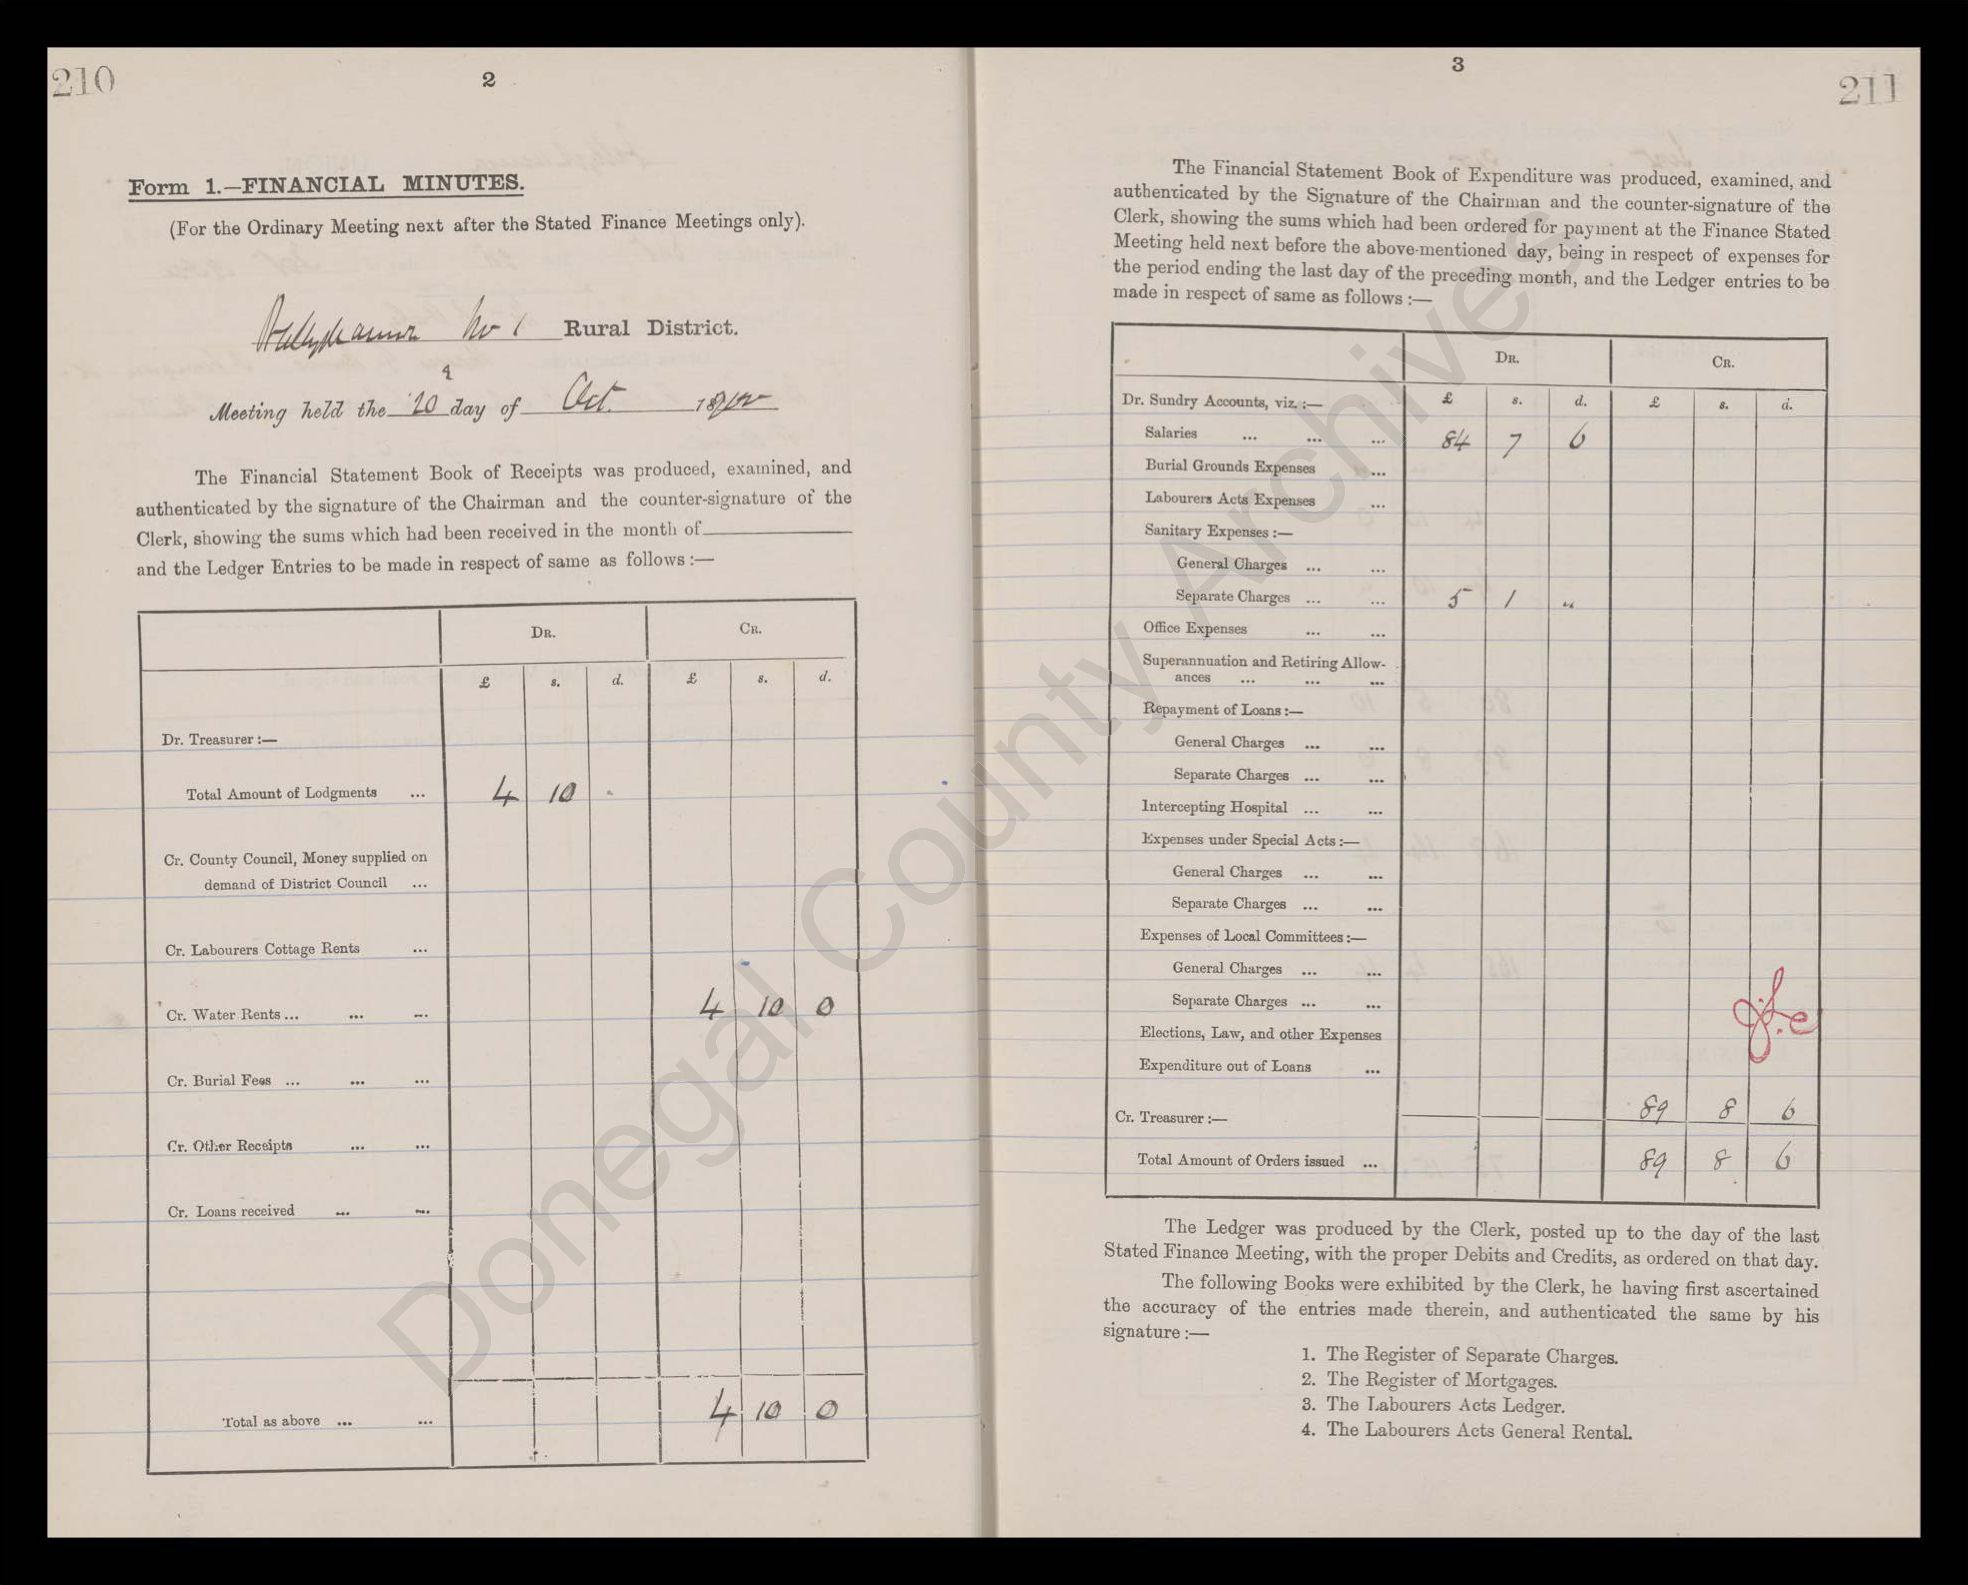 210
2
Form 1.—FINANCIAL MINUTES.
(For the Ordinary Meeting next after the Stated Finance Meetings only).
No 1 Rural District.
Meeting held the 20 day of Oct.
The Financial Statement Book of Receipts was produced, examined, and
authenticated by the signature of the Chairman and the counter-signature of the
Clerk, showing the sums which had been received in the month of
and the Ledger Entries to be made in respect of same as follows :—
DR. CR.
£ s. d. £ s. d.
Dr. Treasurer :—
Total Amount of Lodgments ... 4 10 -
Cr. County Council, Money supplied on
demand of District Council ...
Cr. Labourers Cottage Rents ...
Cr. Water Rents ... ... ... 4 10 0
Cr. Burial Fees ... ... ...
Cr. Other Receipts ... ...
Cr. Loans received ... ...
Total as above ... ... 4 10 0
3
211
The Financial Statement Book of Expenditure was produced, examined, and
authenticated by the Signature of the Chairman and the counter-signature of the
Clerk, showing the sums which had been ordered for payment at the Finance Stated
Meeting held next before the above-mentioned day, being in respect of expenses for
the period ending the last day of the preceding month, and the Ledger entries to be
made in respect of same as follows :—
DR. CR.
Dr. Sundry Accounts, viz. :— £ s. d. £ s. d.
Salaries ... ... ... 84 7 6
Burial Grounds Expenses ...
Labourers Acts Expenses ...
Sanitary Expenses :—
General Charges ... ...
Separate Charges ... ... 5 1 "
Office Expenses ... ...
Superannuation and Retiring Allow-
ances ... ... ...
Repayment of Loans :—
General Charges ... ...
Separate Charges ... ...
Intercepting Hospital ... ...
Expenses under Special Acts :—
General Charges ... ...
Separate Charges ... ...
Expenses of Local Committees :—
General Charges ... ...
Separate Charges ... ...
Elections, Law, and other Expenses
Expenditure out of Loans ...
Cr. Treasurer :— 89 8 6
Total Amount of Orders issued ... 89 8 6
The Ledger was produced by the Clerk, posted up to the day of the last
Stated Finance Meeting, with the proper Debits and Credits, as ordered on that day.
The following Books were exhibited by the Clerk, he having first ascertained
the accuracy of the entries made therein, and authenticated the same by his
signature :—
1. The Register of Separate Charges.
2. The Register of Mortgages.
3. The Labourers Acts Ledger.
4. The Labourers Acts General Rental.
Donegal County Archives